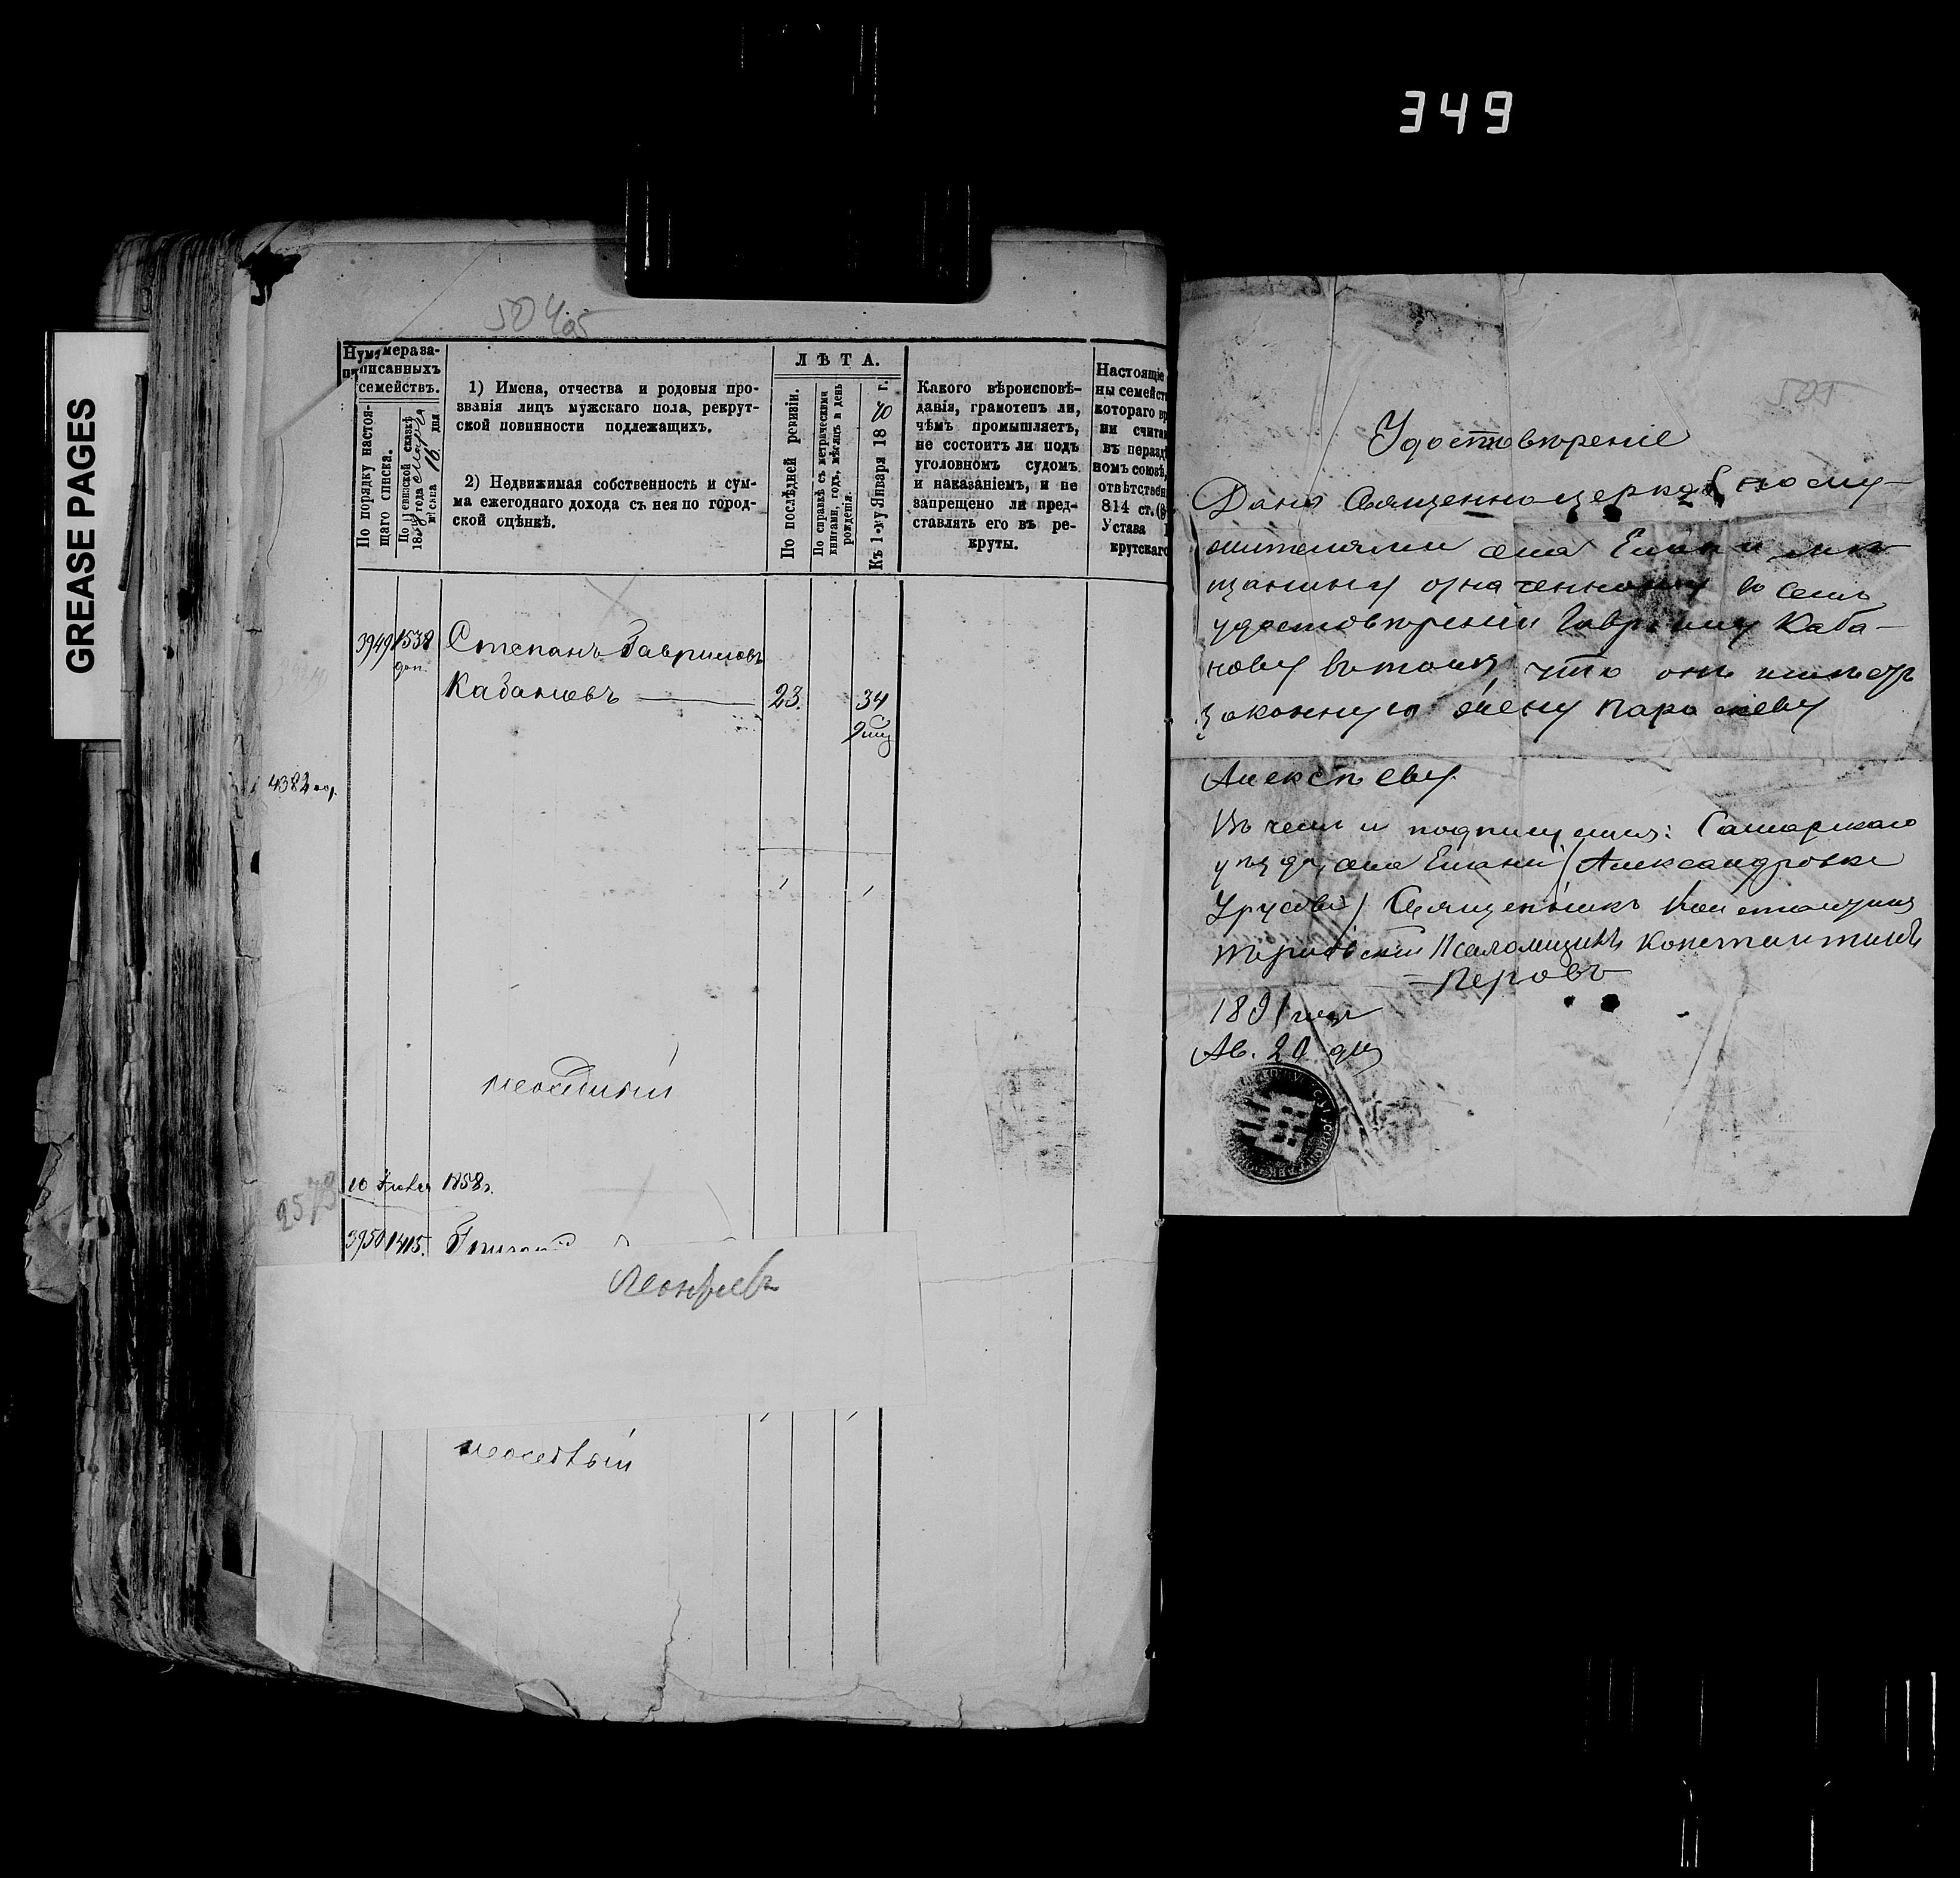 349
GREASE PAGES
504
505
Нумера за-
писанныхъ
семействъ.
По порядку настоя-
щаго списка.
По ревизской сказкѣ
18 года Марта
мѣсяца 16 дня
1) Имена, отчества и родовыя про-
званія лицъ мужскаго пола, рекрут-
ской повинности подлежащихъ.
2) Недвижимая собственность и сум-
ма ежегоднаго дохода съ нея по город-
ской оцѣнкѣ.
ЛѢТА.
По послѣдней ревизіи.
По справкѣ съ метрическими
книгами, годъ, мѣсяцъ и день
рожденія.
Къ 1-му Января 18 г.
Какого вѣроисповѣ-
данія, грамотенъ ли,
чѣмъ промышляетъ,
не состоитъ ли подъ
уголовномъ судомъ
и наказаніемъ, и не
запрещено ли пред-
ставлять его въ ре-
круты.
Настоящіе
ны семейст
котораго вр
ни счита
въ перазд
номъ союзѣ,
отвѣтствен
814 ст.
Устава
крутскаго
3949 1538 Степанъ Гавриловъ
доп.
Кабановъ 23. 34
4382
неоседлый
10 1858г.
2573
3950 1415.
неоседлый
Удостовѣреніе
Дано Священноцерковно слу-
жителями села мѣ-
щанину означенному въ семъ
удостовѣреніи Гаврилу Каба-
нову въ томъ, что онъ имѣетъ
законную жену Параскеву
Алексѣеву.
Въ чемъ и подпишемся: Самарскаго
уѣзда, села /Александровки
Урусово/ Священникъ
Псаломщикъ Константинъ
Перовъ
1891 года
Ав. 20 дня